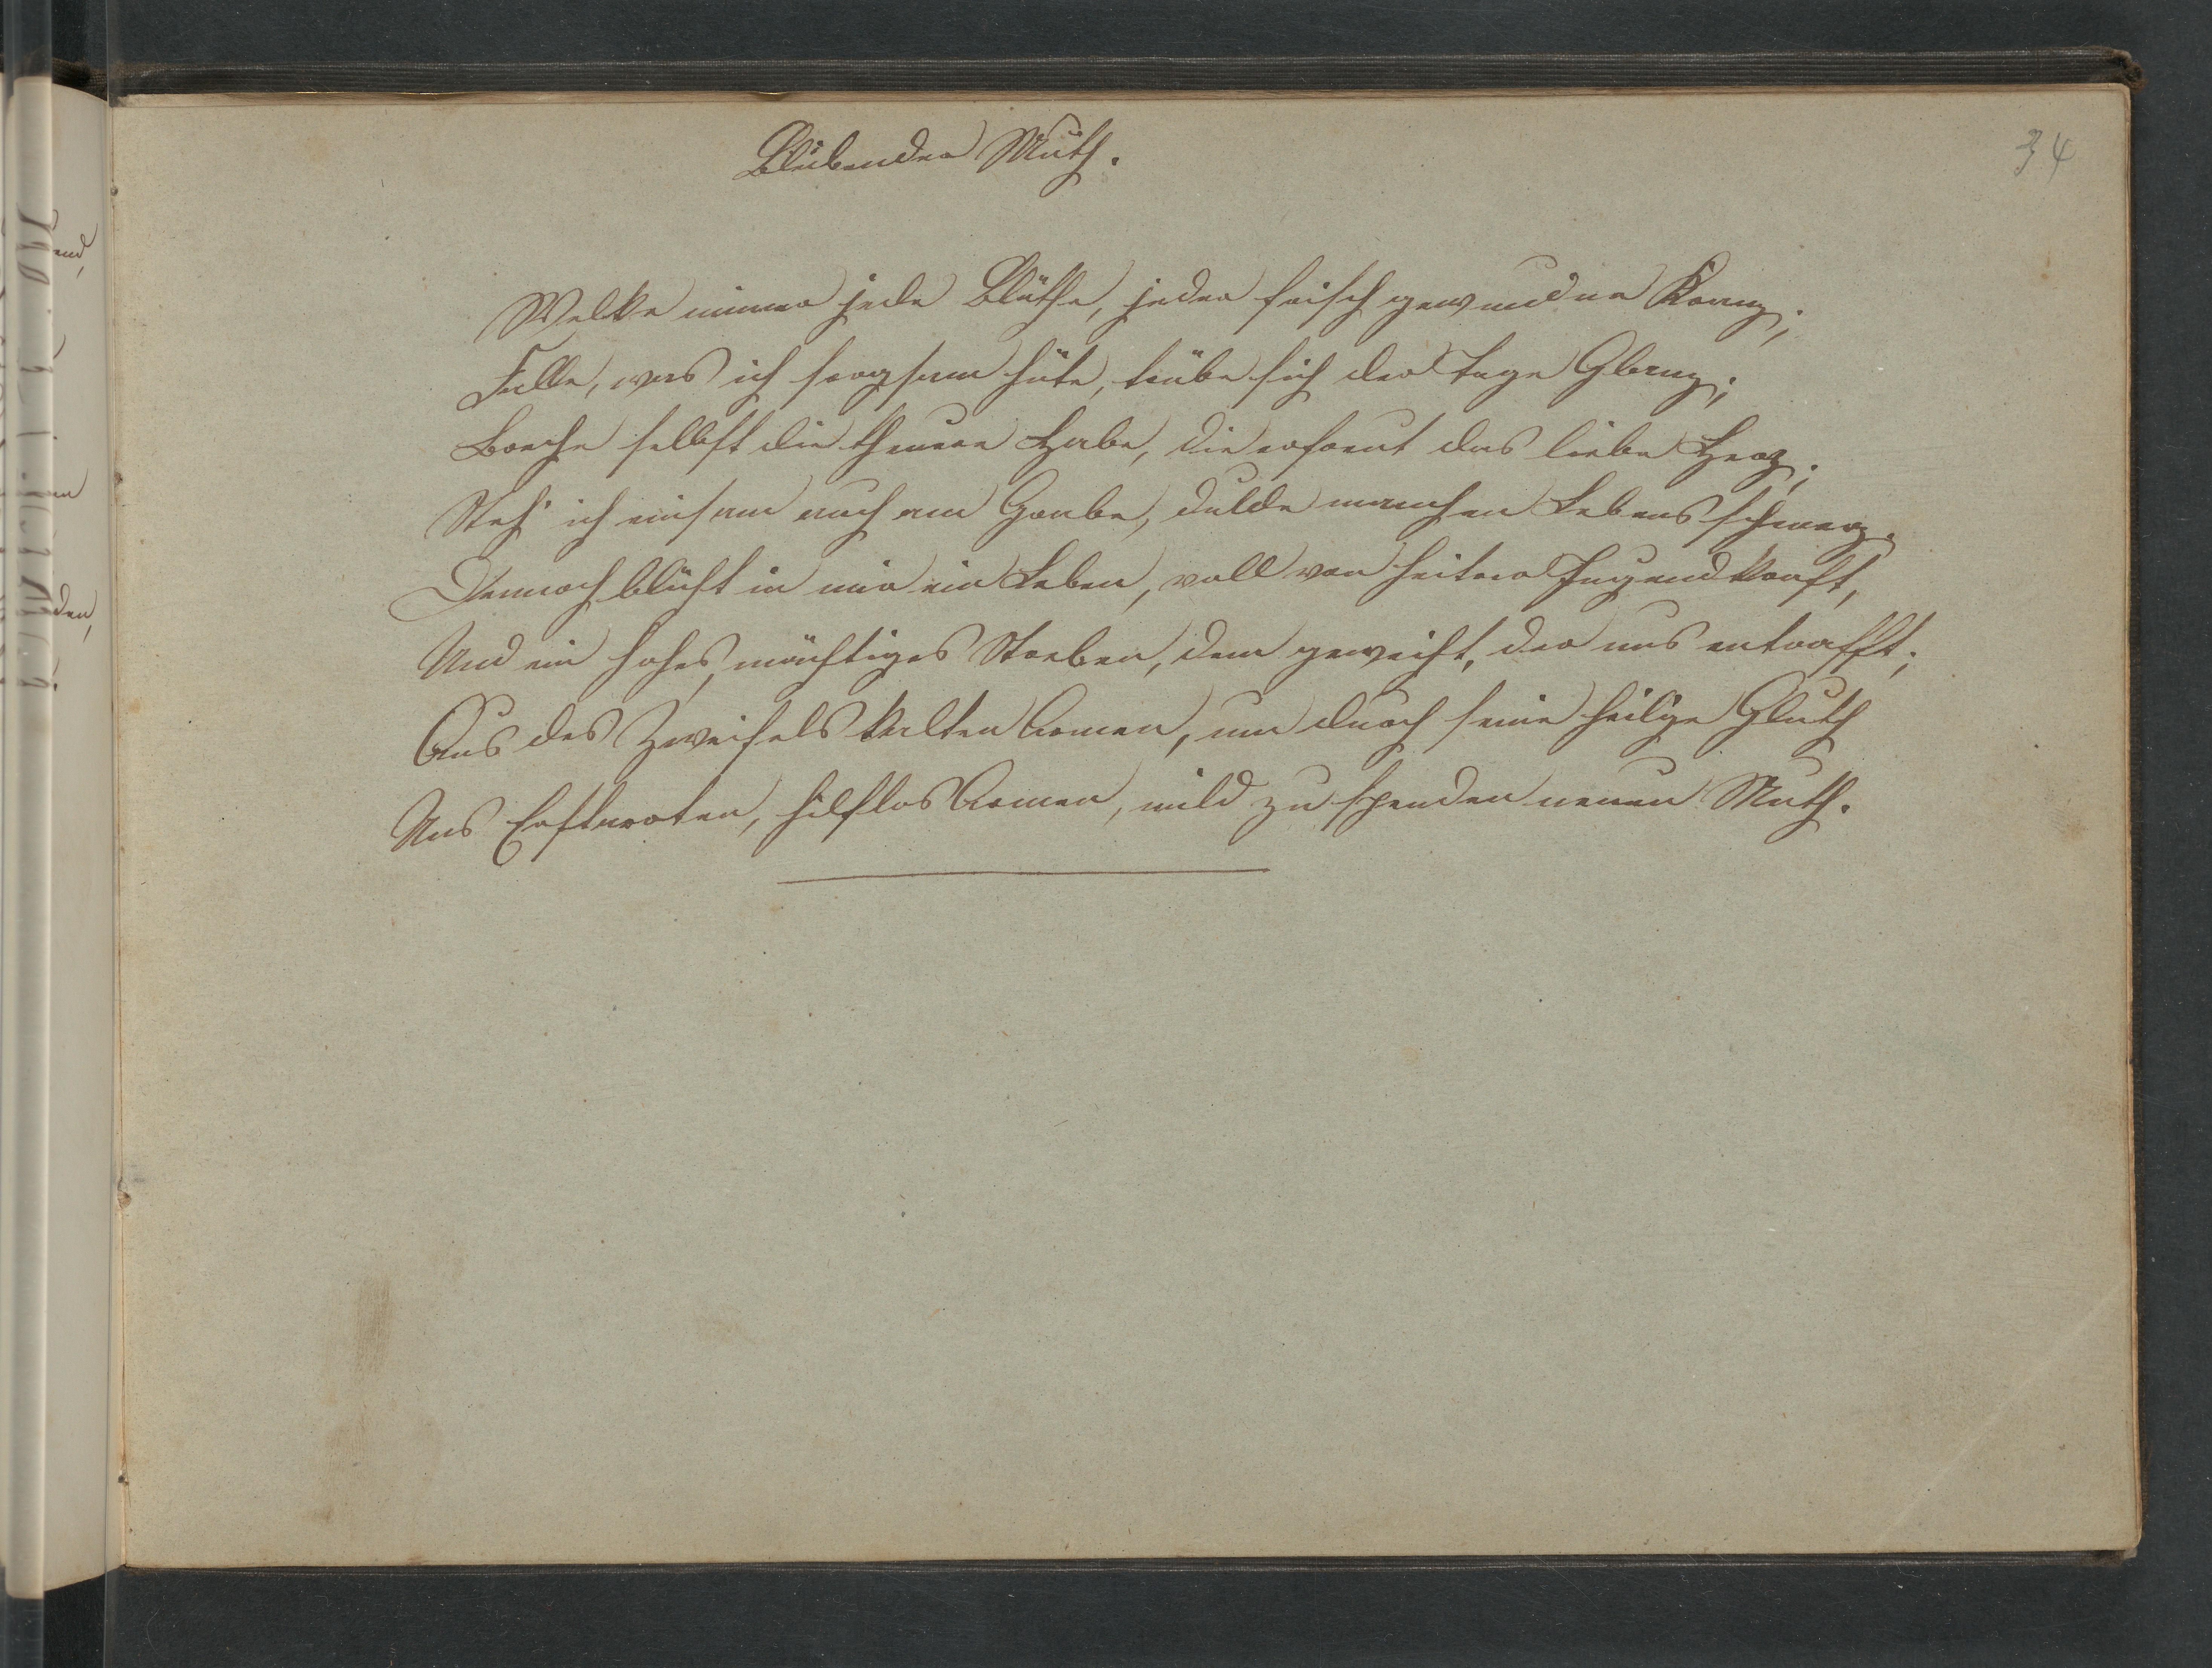 34
Bleibender Muth.
Welke immer jede Blüthe, jeder frisch gewundne Kranz;
Falle, was ich sorgsam hüte, trübe sich der Tage Glanz;
Breche selbst die theure Habe, die erfreut das liebe Herz;
Steh' ich einsam auch am Grabe, dulde manchen Lebensschmerz.
Dennoch blüht in mir ein Leben, voll von heitrer Jugendkraft,
Und ein hohes, mächtiges Streben, dem geweiht, der uns entrafft;
Aus des Zweifels kalten Armen, um durch seine heilige Gluth
Uns Erstarrten, hilflos Armen, mild zu spenden neuen Muth.
end,
en
den,